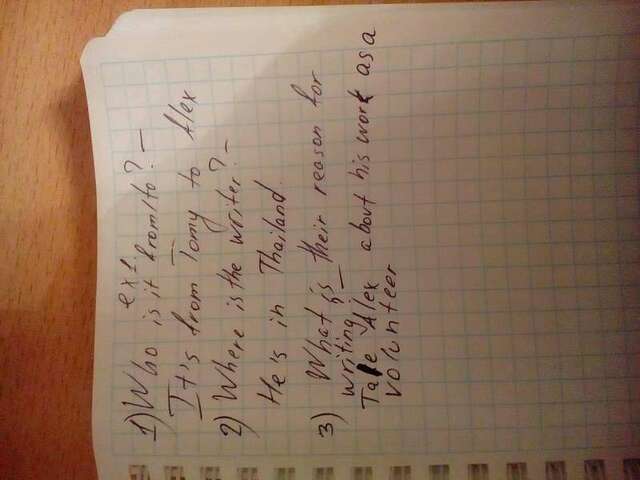 ex1.
1) Who is it from/to? –
It's from Tomy to Alex
2) Where is the writer? –
He's in Thailand.
3) What is their reason for
writing? –
Tale Alex about his work as a
volunteer